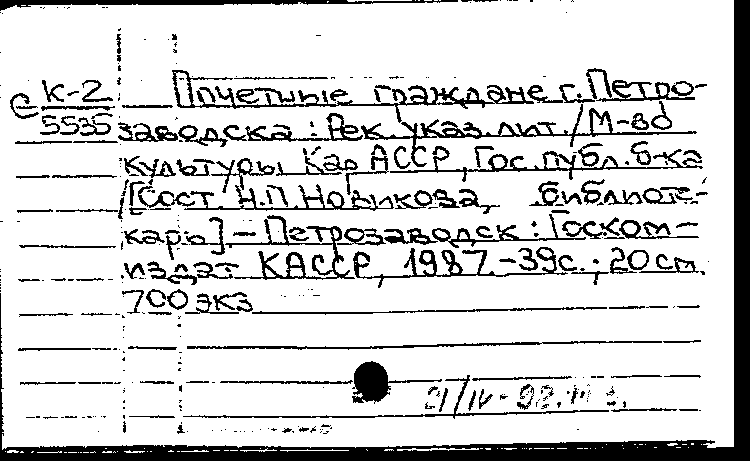 с К-2 Почетные граждане г. Петро-
5535 заводска : Рек. указ. лит. / М-во
культуры Кар АССР, Гос. публ. б-ка
/ [Сост. Н.П. Новикова, библиоте-
карь]. – Петрозаводск : Госком-
издат КАССР, 1987. – 39с. ; 20 см.
700 экз
21/IV - 98.